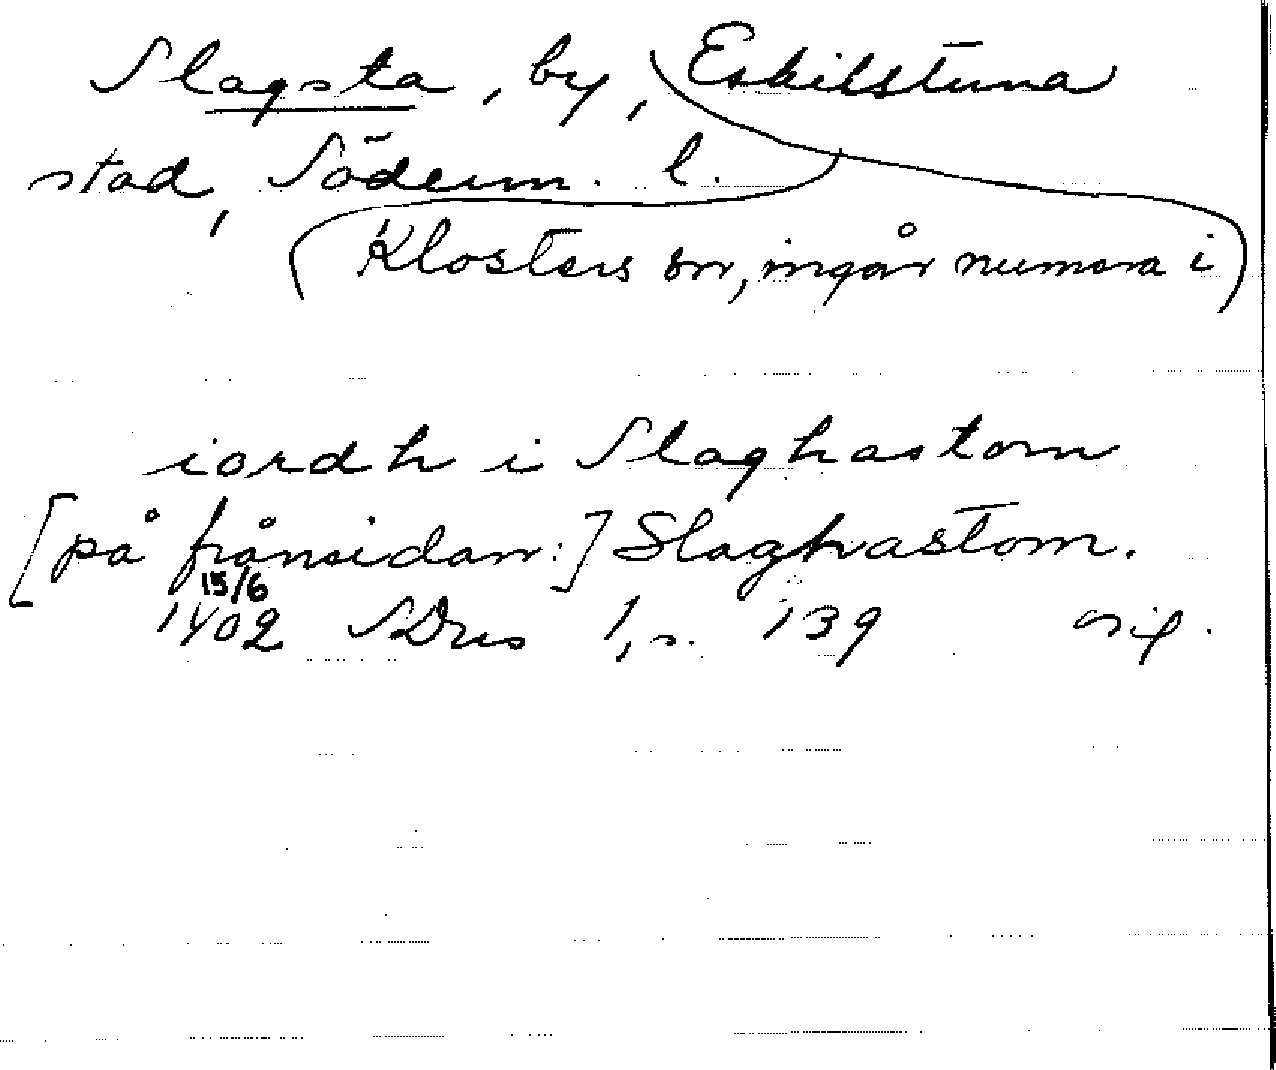 Slagsta, by, Eskilstuna
stad, Söderm. l.
(Klosters sn, ingår numera i)
iordh i Slaghastom
[på frånsidan:] Slaghastom.
15/6
1402 SDns 1, s. 139 orig.